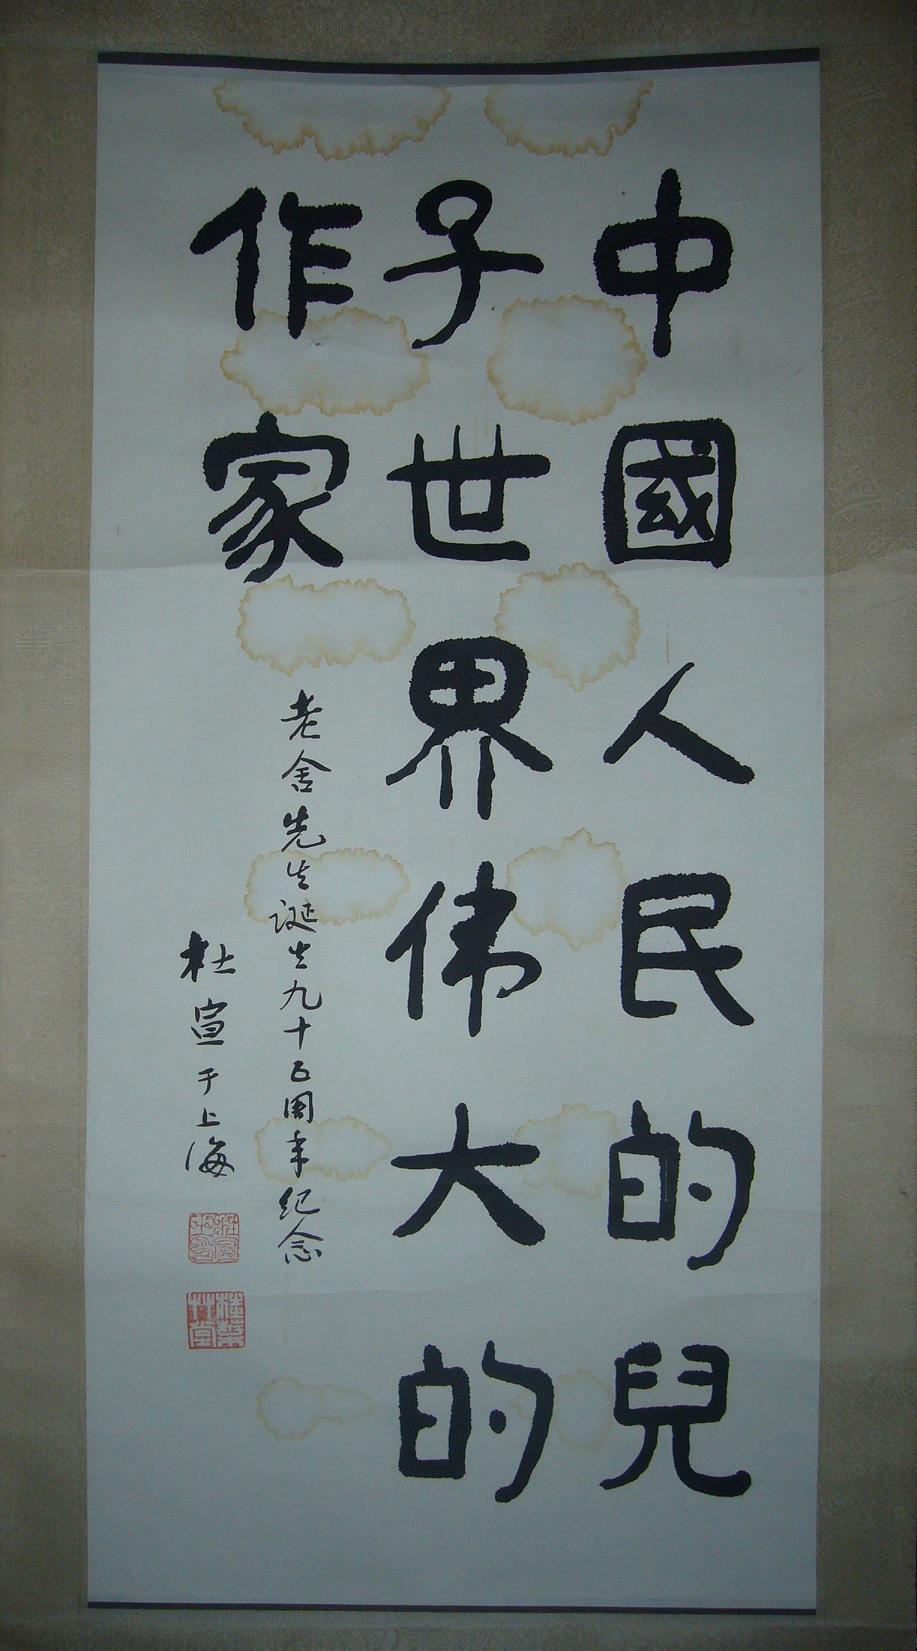 中國人民的兒
子世界伟大的
作家
老舍先生诞生九十五周年纪念
杜宣于上海